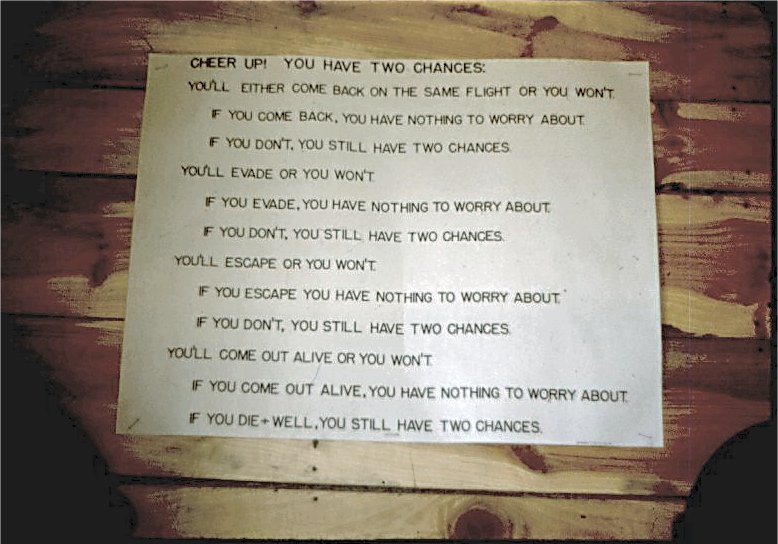 CHEER UP! YOU HAVE TWO CHANCES:
YOU'LL EITHER COME BACK ON THE SAME FLIGHT OR YOU WON'T.
IF YOU COME BACK, YOU HAVE NOTHING TO WORRY ABOUT.
IF YOU DON'T, YOU STILL HAVE TWO CHANCES.
YOU'LL EVADE OR YOU WON'T.
IF YOU EVADE, YOU HAVE NOTHING TO WORRY ABOUT.
IF YOU DON'T, YOU STILL HAVE TWO CHANCES.
YOU'LL ESCAPE OR YOU WON'T.
IF YOU ESCAPE YOU HAVE NOTHING TO WORRY ABOUT.
IF YOU DON'T, YOU STILL HAVE TWO CHANCES.
YOU'LL COME OUT ALIVE OR YOU WON'T.
IF YOU COME OUT ALIVE, YOU HAVE NOTHING TO WORRY ABOUT.
IF YOU DIE + WELL, YOU STILL HAVE TWO CHANCES.